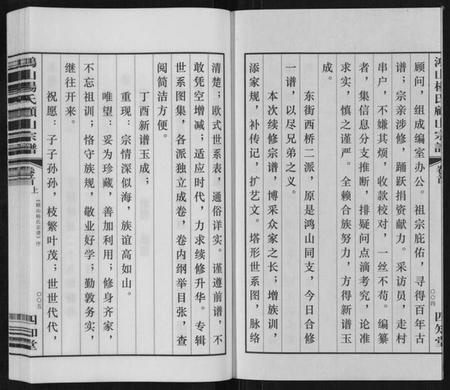 鸿山杨氏顾山宗谱
卷首
〇〇四
四知堂
顾问，组成编室办公。祖宗庇佑，寻得百年古
谱；宗亲涉修，踊跃捐资献力。采访员，走村
串户，不嫌其烦，收款校对，一丝不苟。编纂
者，集信息分支推断，排疑问点滴考究，论准
求实，慎之谨严。全赖合族努力，方得新谱玉
成。
东街西桥二派，原是鸿山同支，今日合修
一谱，以尽兄弟之义。
本次续修宗谱，博采众家之长；增族训，
添家规，补传记，扩艺文。塔形世系图，脉络
清楚；欧式世系表，通俗详实。谨遵前谱，不
敢凭空增减；适应时代，力求续修升华。专辑
世系图集，各派独立成卷，卷内纲举目张，查
阅简洁方便。
丁酉新谱玉成；
重现：宗情深似海，族谊高如山。
唯望：妥为珍藏，善加利用；修身齐家，
不忘祖训；恪守族规，敬业好学；勤敦务实，
继往开来。
祝愿：子子孙孙，枝繁叶茂；世世代代，
鸿山杨氏顾山宗谱
卷首
上
序
〇〇五
四知堂